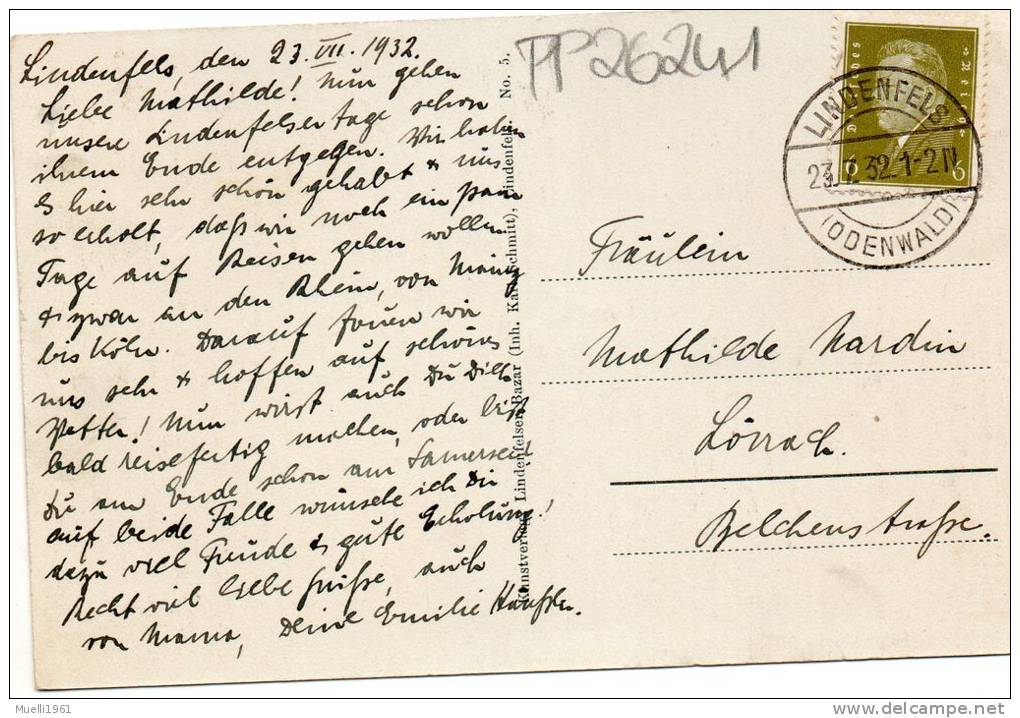 Lindenfels, den 23. VII. 1932.
Liebe Mathilde! Nun gehen
unsere Lindenfelser Tage schon
ihrem Ende entgegen. Wir haben
es hier sehr schön gehabt & uns
so erholt, daß wir noch ein paar
Tage auf Reisen gehen wollen
& zwar an den Rhein, von Mainz
bis Köln. Darauf freuen wir
uns sehr & hoffen auf schönes
Wetter! Nun wirst auch Du Dich
bald reisefertig machen, oder bist
Du am Ende schon am
auf beide Fälle wünsche ich Dir
dazu viel Freude & gute Erholung!
Recht viel liebe Grüße, auch
von Mama, Deine Emilie
Kunstverlag Lindenfelser Bazar (Inh. Karl Schmitt), Lindenfels. No. 5.
PP26241
Deutsches Reich
6 6
LINDENFELS
23.7.32.1-2N
(ODENWALD)
Fräulein
Mathilde Nardin
Lörrach.
Belchenstraße.
Muelli1961
www.delcampe.net